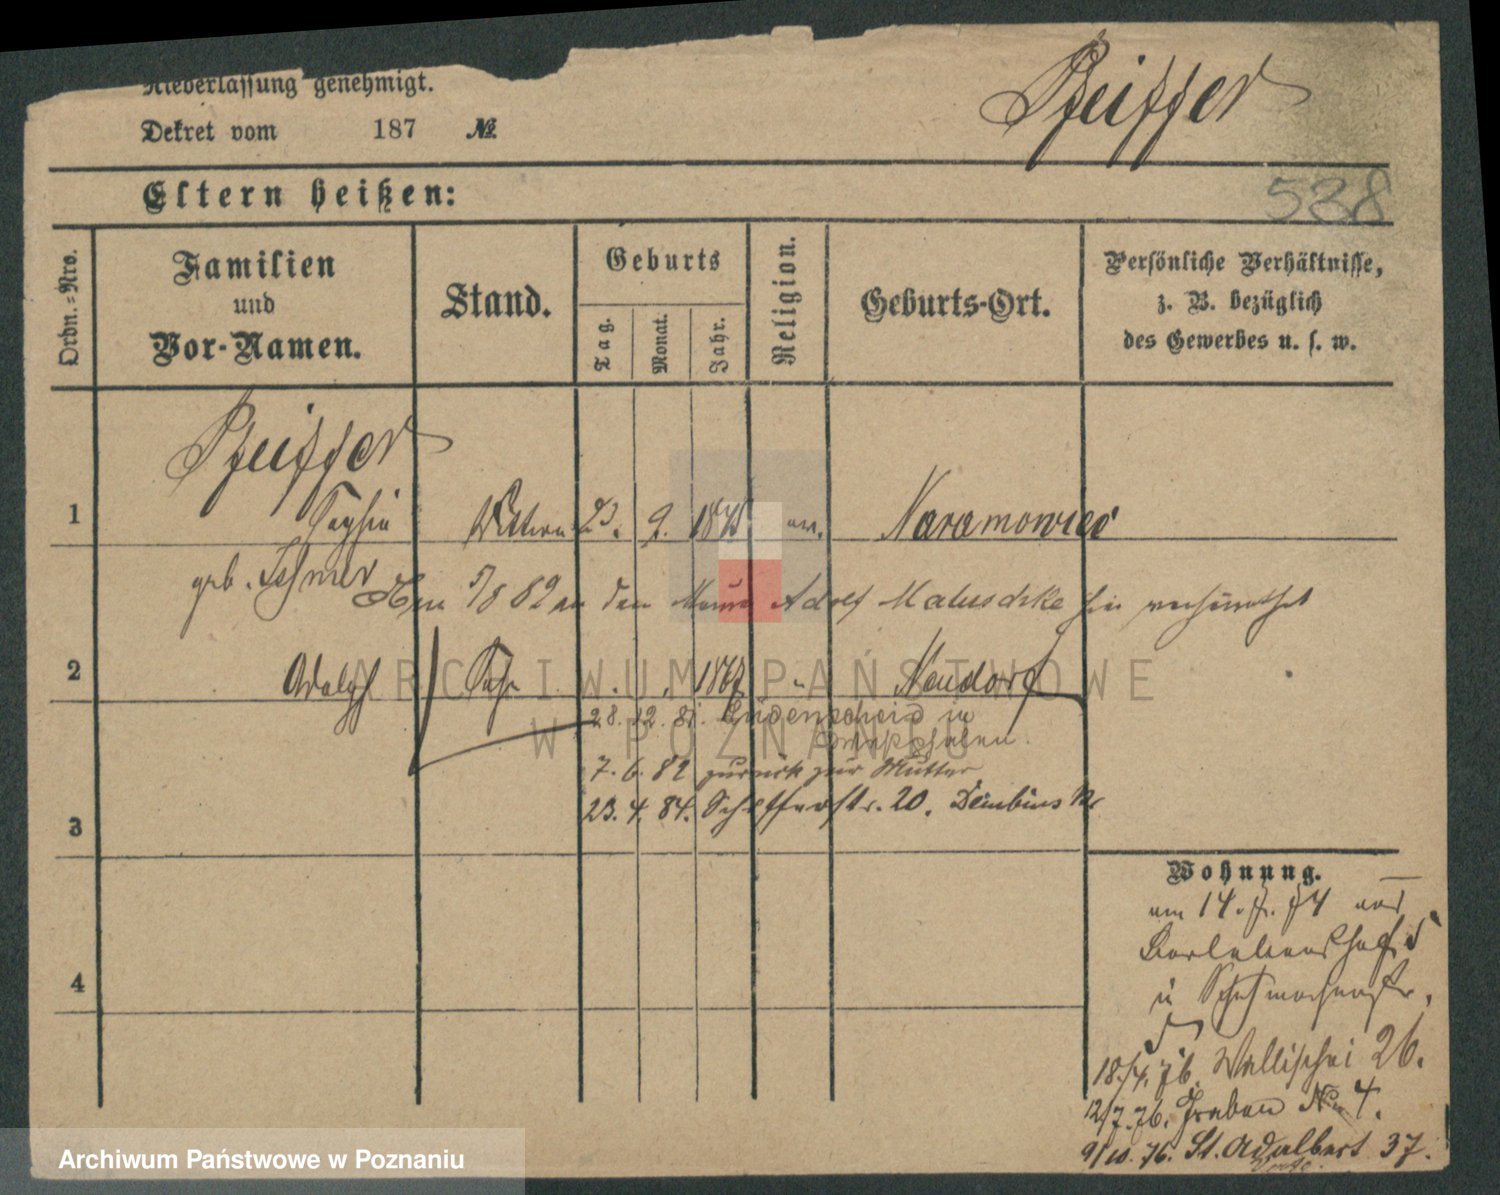 Niederlassung genehmigt.
Dekret vom 187 №
Pfeiffer
Eltern heißen:
538
Ordn.-Nro.
Familien
und
Vor-Namen.
Stand.
Geburts
Tag.
Monat.
Jahr.
Religion.
Geburts-Ort.
Persönliche Verhältnisse,
z. B. bezüglich
des Gewerbes u. s. w.
Pfeiffer
1 23. 9. Naramowice
geb.
5/8 82 an den Adolf Maluschke verheirathet
2 Adolph Sohn 1867 Neudorf
28. 12. 81. Lüdenscheid in
Westphalen.
7. 6. 82 zurück zur Mutter
23. 4. 84. Schifferstr. 20.
3
4
Wohnung.
am 14. 74
u
18/4. 76. Wallischei 26.
12/7. 76. Graben No 4.
9/10. 76. St. Adalbert 37.
ARCHIWUM PAŃSTWOWE
W POZNANIU
Archiwum Państwowe w Poznaniu